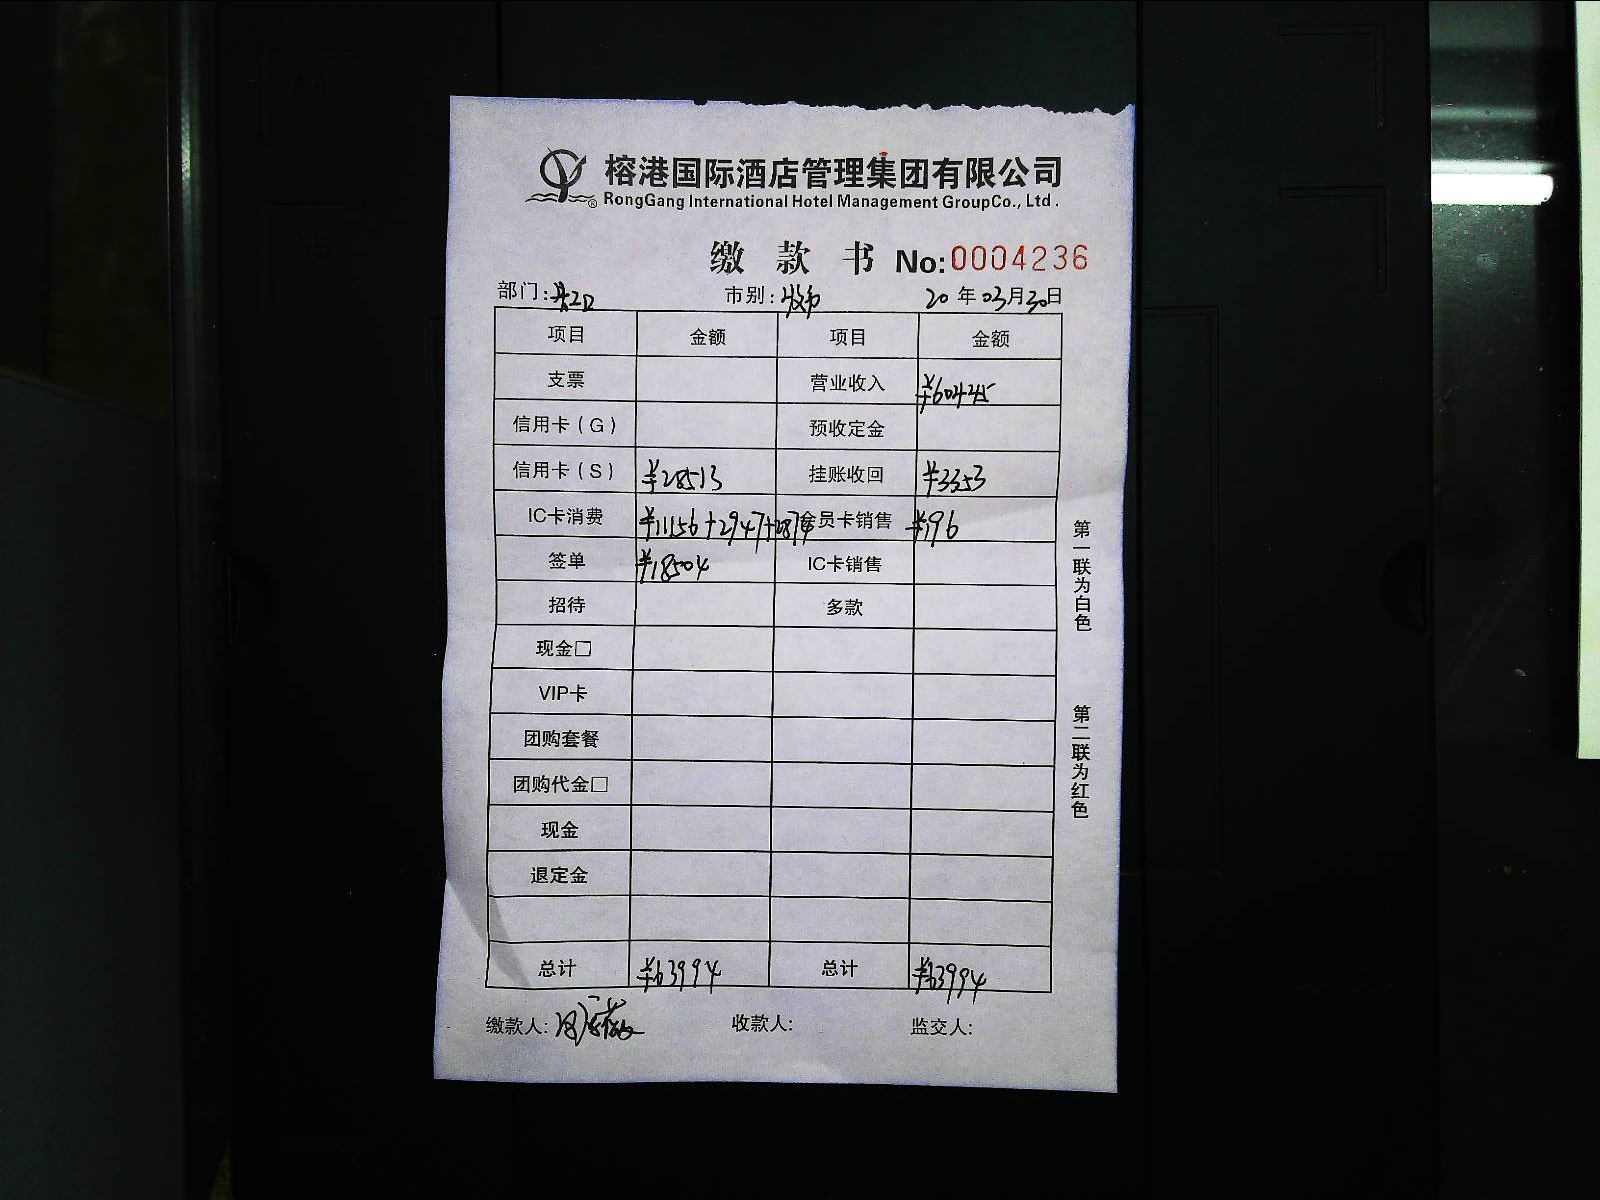 榕港国际酒店管理集团有限公司
® RongGang International Hotel Management GroupCo., Ltd.
缴 款 书 No:0004236
部门: 市别: 20 年 03月30日
项目 金额 项目 金额
支票 营业收入 ¥60445
信用卡(G) 预收定金
信用卡(S) ¥28513 挂账收回 ¥3353
IC卡消费 ¥11156+2947+2874 会员卡销售 ¥196
签单 ¥18504 IC卡销售
招待 多款
现金□
VIP卡
团购套餐
团购代金□
现金
退定金
总计 ¥63994 总计 ¥63994
缴款人: 收款人: 监交人:
第一联为白色
第二联为红色